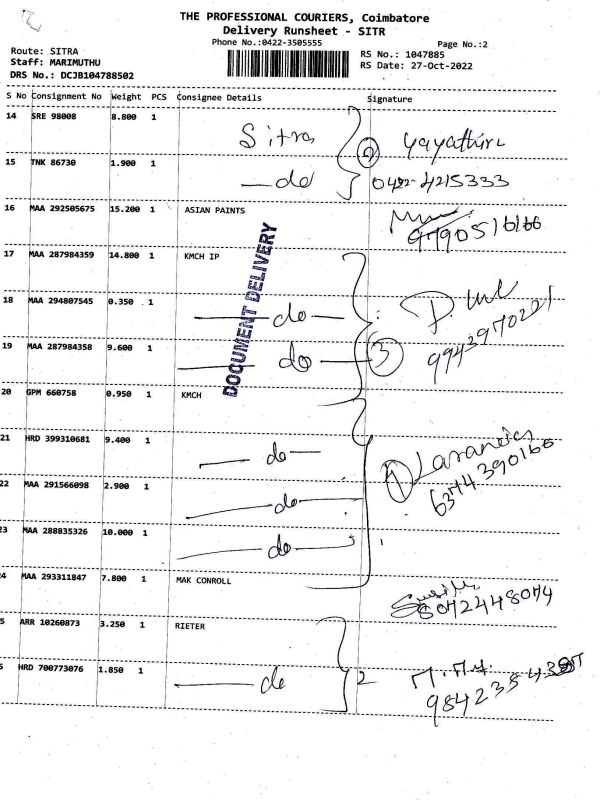 THE PROFESSIONAL COURIERS, Coimbatore
Delivery Runsheet - SITR
Phone No.:0422-3505555
Page No.:2
Route: SITRA
Staff: MARIMUTHU
DRS No.: DCJB104788502
RS No.: 1047885
RS Date: 27-Oct-2022
S No Consignment No Weight PCS Consignee Details Signature
14 SRE 98008 8.800 1 Sitra
15 TNK 86730 1.900 1 do 0422-4215333
16 MAA 292505675 15.200 1 ASIAN PAINTS 9790516166
17 MAA 287984359 14.800 1 KMCH IP
18 MAA 294807545 0.350 1 do
19 MAA 287984358 9.600 1 do 3 9943970221
DOCUMENT DELIVERY
20 GPM 660758 0.950 1 KMCH
21 HRD 399310681 9.400 1 do 6374390160
22 MAA 291566098 2.900 1 do
23 MAA 288835326 10.000 1 do
24 MAA 293311847 7.800 1 MAK CONROLL 8072448074
5 ARR 10260873 3.250 1 RIETER
HRD 700773076 1.850 1 do 2